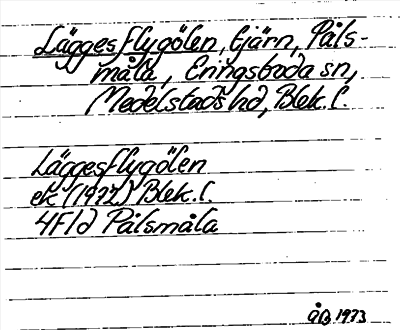 Läggesflygölen, tjärn, Påls-
måla, Eringsboda sn,
Medelstads hd, Blek. l.
Läggesflygölen
ek (1972) Blek. l.
4F1d Pålsmåla
ÅB 1973